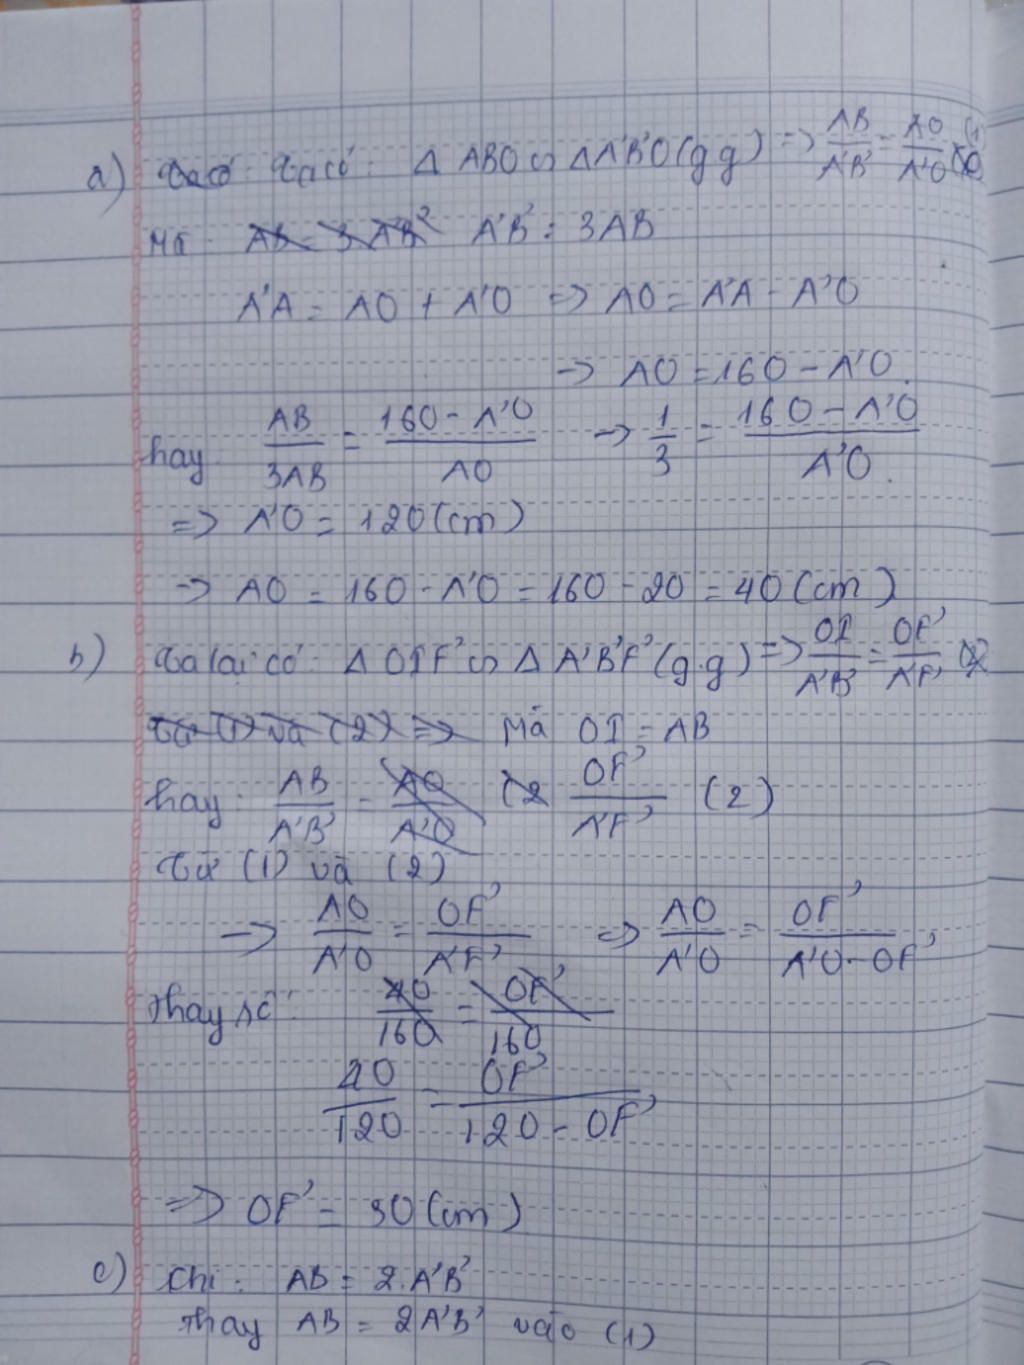 a) Ta có: Ta có: Δ ABO ∽ Δ A'B'O (g g) => AB/A'B' = AO/A'O (1)
Mà: AB = 3 AB² A'B' = 3AB
A'A = AO + A'O => AO = A'A - A'O
=> AO = 160 - A'O.
hay AB/3AB = (160 - A'O)/AO -> 1/3 = (160 - A'O)/A'O.
=> A'O = 120 (cm)
-> AO = 160 - A'O = 160 - 20 = 40 (cm)
b) Ta lại có: Δ OIF' ∽ Δ A'B'F' (g.g) => OI/A'B' = OF'/A'F'
Từ (1) và (2) => Mà OI = AB
hay: AB/A'B' = AO/A'O (2 OF'/A'F' (2)
Từ (1) và (2)
-> AO/A'O = OF'/A'F' => AO/A'O = OF'/(A'O - OF')
Thay số: 40/160 = OF'/160
40/120 = OF'/(120 - OF')
=> OF' = 30 (cm)
c) Khi: AB = 2.A'B'
Thay AB = 2A'B' vào (1)